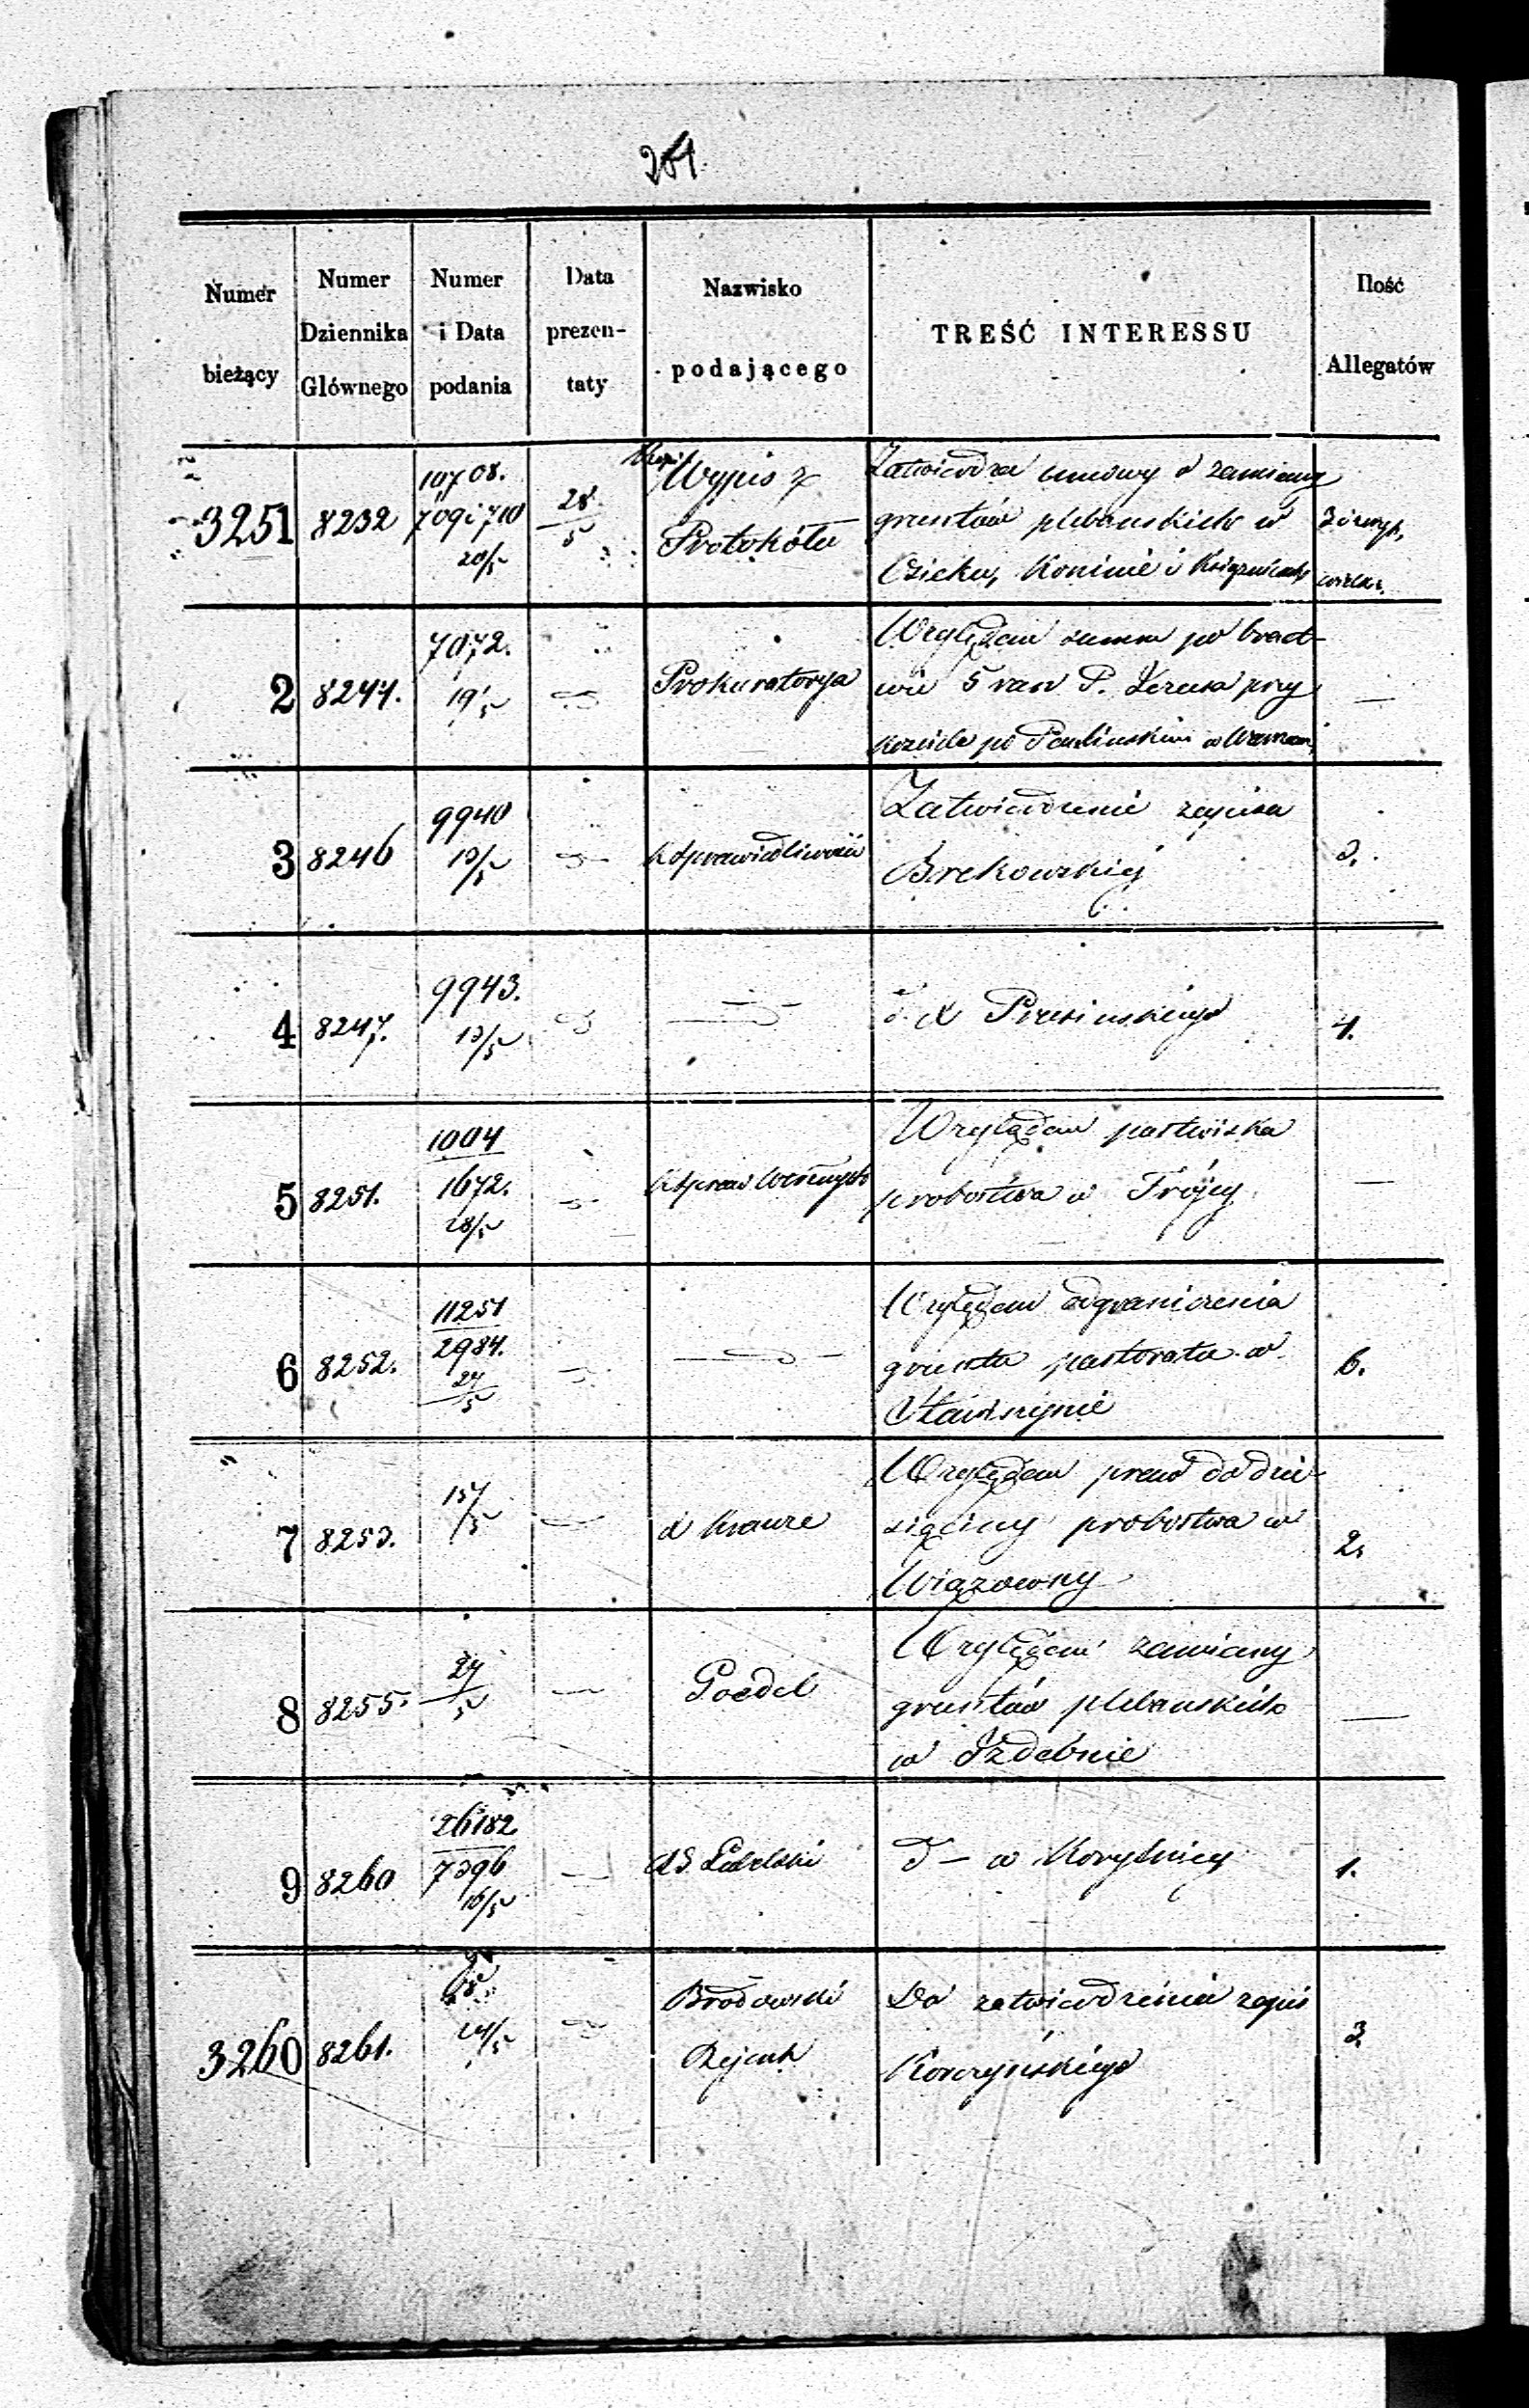 Numer bieżący
Numer Dziennika Głównego
Numer i Data podania
Data prezentaty
Nazwisko podającego
TREŚĆ INTERESSU
Ilość Allegatów
3251 8232
10708.
709 i 710
20/5
28/5
Wypis z
Protokółu
Zatwierdza umowy o zamianę
gruntów plebańskich w
Osieku, Koninie i
2 8244.
7072.
19/5
Prokuratorya
Względem summ po bract-
wie 5 ran P. Jezusa przy
kościele po Paulińskim w
—
3 8246
9940
13/5
K Sprawiedliwości
Zatwierdzenie zapisu
3.
4 8247.
9943.
13/5
4.
5 8251.
1004
1672.
28/5
K Spraw Wewnętr
Względem pastwiska
probostwa w Trójcy
—
6 8252.
11251
2984.
27/5
Względem odgraniczenia
gruntu pastoratu w
Stawiszynie
6.
7 8253.
157/5
X Krauze
Względem praw do dzie-
sięciny probostwa w
Wiązowny
2.
8 8255.
27/5
Goedel
Względem zamiany
gruntów plebańskich
w Izdebnie
—
9 8260
26182
7396
16/5
RG Lubelski
d – w Korytnicy
1.
3260 8261.
24/5
Brodowski
Rejent
Do zatwierdzenia zapis
Korczyńskiego
3